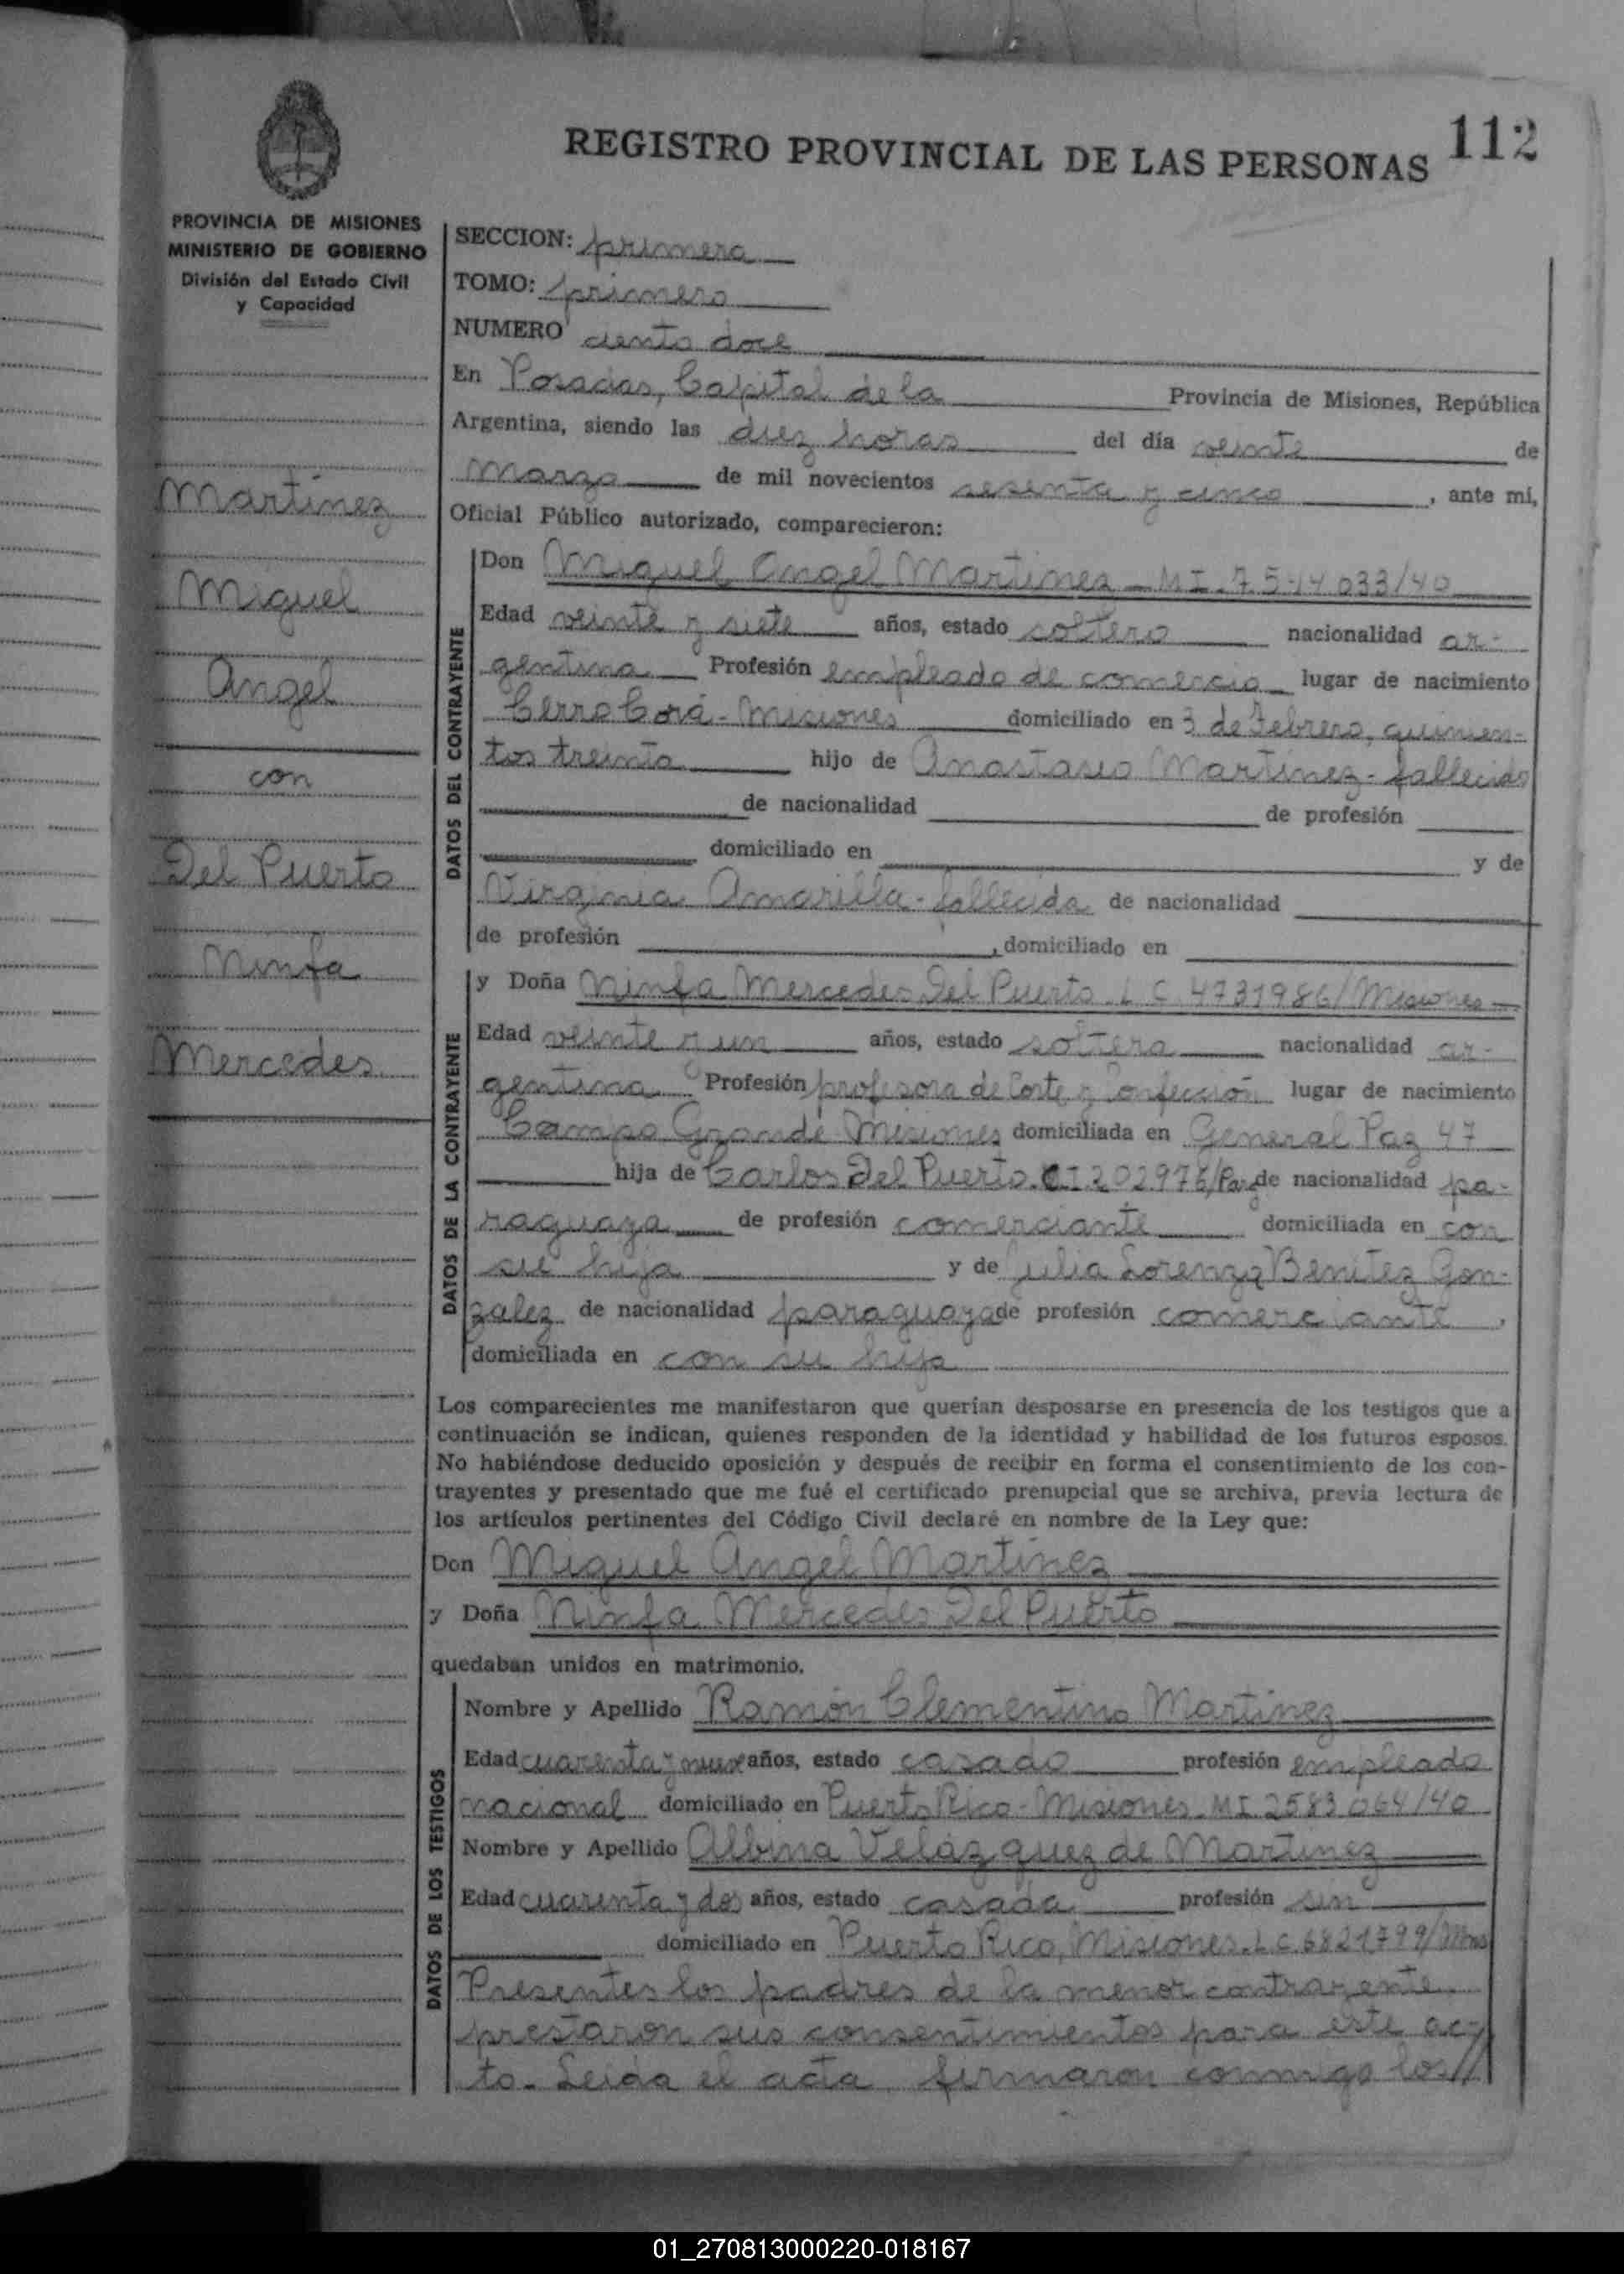 REGISTRO PROVINCIAL DE LAS PERSONAS 112
PROVINCIA DE MISIONES
MINISTERIO DE GOBIERNO
División del Estado Civil
y Capacidad
Martinez
Miguel
Angel
con
Del Puerto
Ninfa
Mercedes
SECCION: primera
TOMO: primero
NUMERO ciento doce
En Posadas, Capital de la Provincia de Misiones, República
Argentina, siendo las diez horas del día veinte de
marzo de mil novecientos sesenta y cinco, ante mi,
Oficial Público autorizado, comparecieron:
DATOS DEL CONTRAYENTE
Don Miguel Angel Martinez - MI. 7.514.033/40
Edad veinte y siete años, estado soltero nacionalidad ar-
gentina Profesión empleado de comercio lugar de nacimiento
Cerro Corá - Misiones domiciliado en 3 de Febrero, quinien-
tos treinta hijo de Anastasio Martinez - fallecido
de nacionalidad de profesión
domiciliado en y de
Virginia Amarilla - fallecida de nacionalidad
de profesión , domiciliado en
DATOS DE LA CONTRAYENTE
y Doña Ninfa Mercedes Del Puerto L C 4731986/Misiones
Edad veinte y un años, estado soltera nacionalidad ar-
gentina Profesión profesora de Corte y Confección lugar de nacimiento
Campo Grande Misiones domiciliada en General Paz 47
hija de Carlos Del Puerto. CI 202976/Parg de nacionalidad pa-
raguaya de profesión comerciante domiciliada en con
su hija y de Julia Lorenza Benitez Gon-
zalez de nacionalidad paraguaya de profesión comerciante ,
domiciliada en con su hija
Los comparecientes me manifestaron que querían desposarse en presencia de los testigos que a
continuación se indican, quienes responden de la identidad y habilidad de los futuros esposos.
No habiéndose deducido oposición y después de recibir en forma el consentimiento de los con-
trayentes y presentado que me fué el certificado prenupcial que se archiva, previa lectura de
los artículos pertinentes del Código Civil declaré en nombre de la Ley que:
Don Miguel Angel Martinez
y Doña Ninfa Mercedes Del Puerto
quedaban unidos en matrimonio.
DATOS DE LOS TESTIGOS
Nombre y Apellido Ramón Clementino Martinez
Edad cuarenta y nueve años, estado casado profesión empleado
nacional domiciliado en Puerto Rico - Misiones. MI 2583064/40
Nombre y Apellido Albina Velázquez de Martinez
Edad cuarenta y dos años, estado casada profesión sin
domiciliado en Puerto Rico, Misiones. L C. 6821799/Mnes
Presentes los padres de la menor contrayente
prestaron sus consentimientos para este ac-
to. Leida el acta, firmaron conmigo los//
01_270813000220-018167